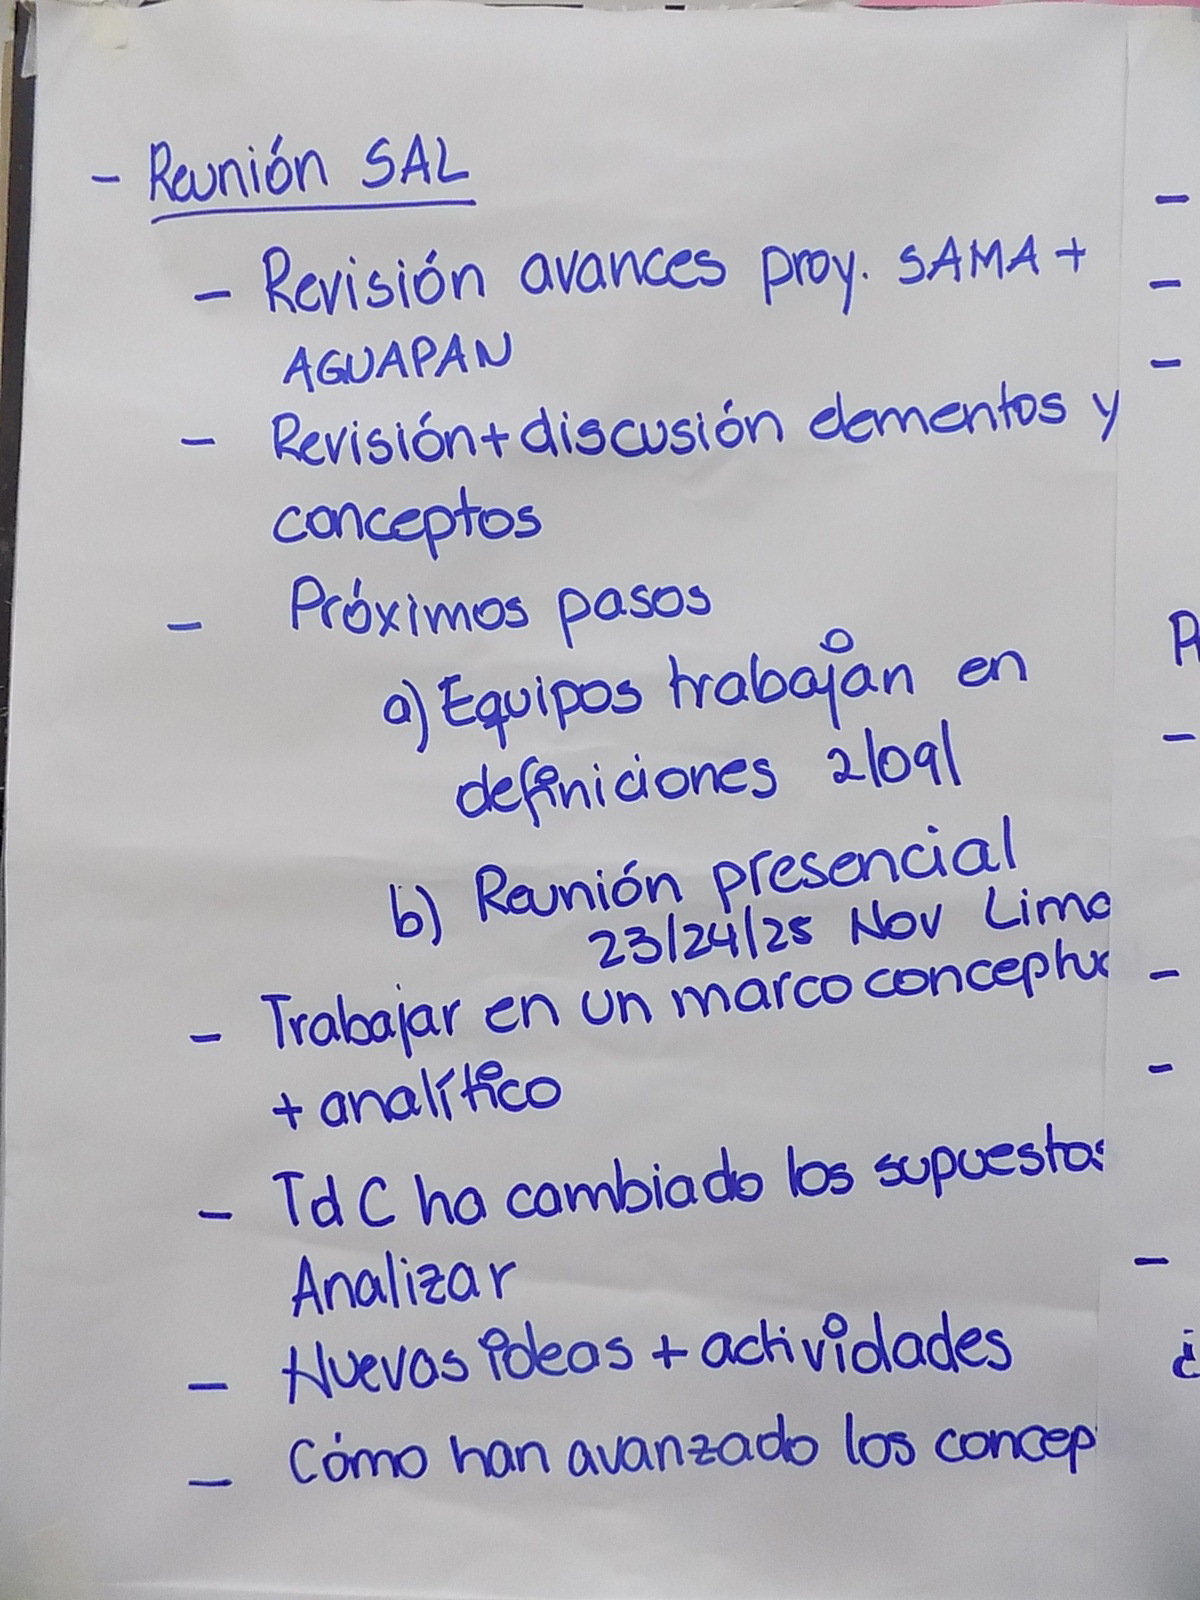 - Reunión SAL
- Revisión avances proy. SAMA +
AGUAPAN
- Revisión + discusión elementos y
conceptos
- Próximos pasos
a) Equipos trabajan en
definiciones 2/09/
b) Reunión presencial
23/24/25 Nov Lima
- Trabajar en un marco conceptua
+ analítico
- TdC ha cambiado los supuestos
Analizar
- Nuevas ideas + actividades
- Cómo han avanzado los concep